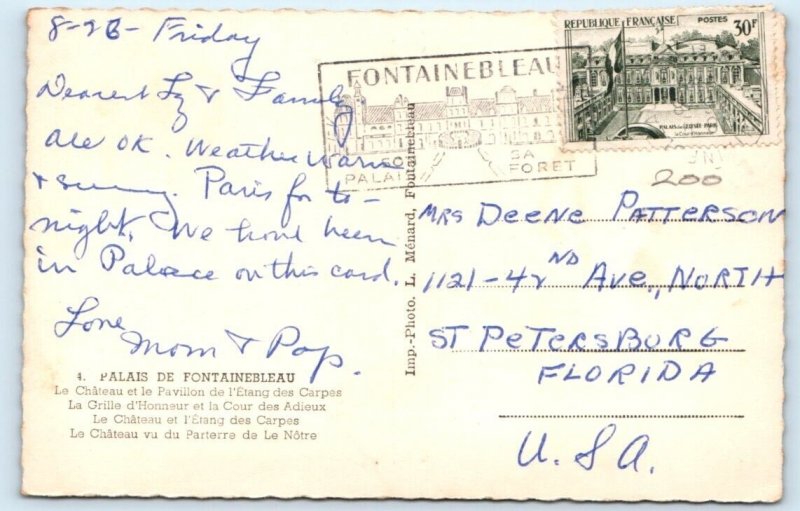 8-26- Friday
Dearest Ly & Family
All OK. Weather Warm
& sunny. Paris for to-
night. We have been
in Palace on this card.
Love
Mom & Pop.
4. PALAIS DE FONTAINEBLEAU
Le Château et le Pavillon de l'Étang des Carpes
La Grille d'Honneur et la Cour des Adieux
Le Château et l'Étang des Carpes
Le Château vu du Parterre de Le Nôtre
Imp.-Photo. L. Ménard, Fontainebleau
FONTAINEBLEAU
SON PALAIS
SA FORET
REPUBLIQUE FRANÇAISE POSTES 30F
PALAIS DE L'ELYSEE PARIS
la Cour d'Honneur
200
MRS DEENE PATTERSON
1121-42ND AVE., NORTH
ST PETERSBURG
FLORIDA
U.S.A.